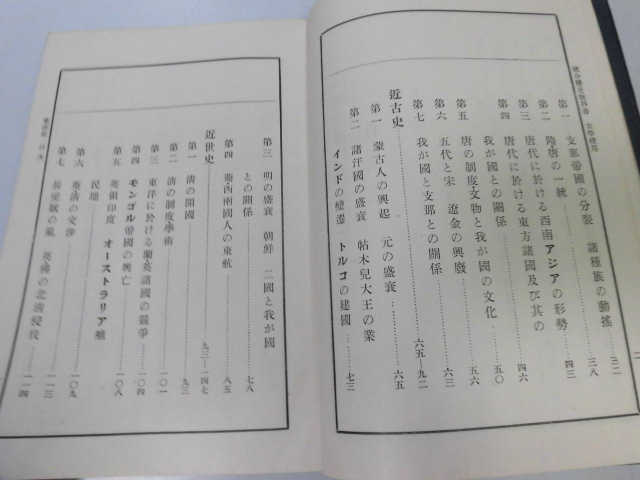 統合歴史教科書 女學校用
第一 支那帝國の分裂 諸種族の動搖 三二
第二 隋唐の一統 三八
第三 唐代に於ける西南アジアの形勢 四三
第三 唐代に於ける東方諸國及び其の
第四 我が國との關係 四六
第五 唐の制度文物と我が國の文化 五〇
第六 五代と宋 遼金の興廢 五六
第七 我が國と支那との關係
近古史 六五—九二
第一 蒙古人の興起 元の盛衰 六五
第二 諸汗國の盛衰 帖木兒大王の業
インドの變遷 トルコの建國 七三
第三 明の盛衰 朝鮮 二國と我が國
との關係 七八
第四 葡西兩國人の東航 八五
近世史 九三—一四七
第一 清の開國 九三
第二 清の制度學術 一〇一
第三 東洋に於ける蘭英諸國の競爭 一〇四
第四 モンゴル帝國の興亡 一〇八
第五 英領印度 オーストラリア殖
民地
第六 英清の交渉 一〇九
第七 長髮賊の亂 英佛の北淸侵伐 一一三
一一四